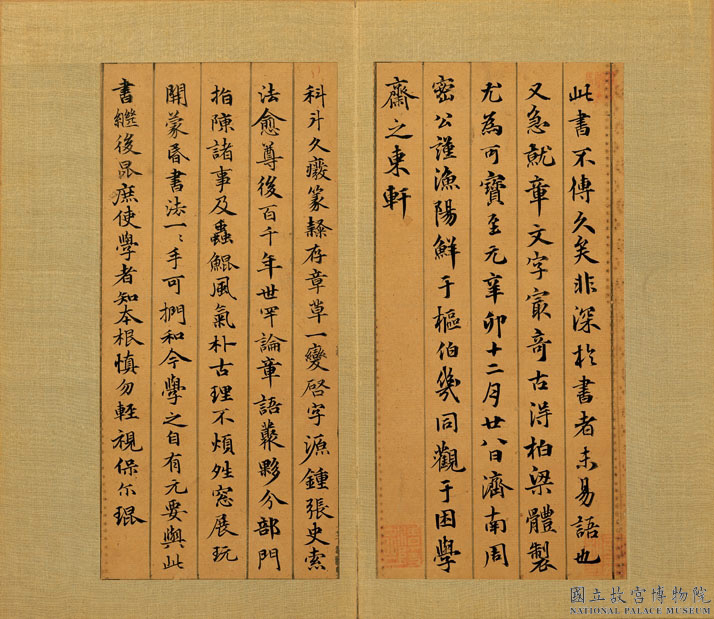 此書不傳久矣非深於書者未易語也
又急就章文字最奇古得柏梁體製
尤為可寶至元辛卯十二月廿八日濟南周
密公謹漁陽鮮于樞伯幾同觀于困學
齋之東軒
科斗久癈篆隸存章草一變啓字源鍾張史索
法愈尊後百千年世罕論章語叢夥分部門
指陳諸事及蟲鯤風氣朴古理不煩矮窓展玩
開蒙昏書法一〻手可捫和今學之自有元要與此
書繼後昆庶使學者知本根慎勿輕視保尔琨
國立故宮博物院
NATIONAL PALACE MUSEUM